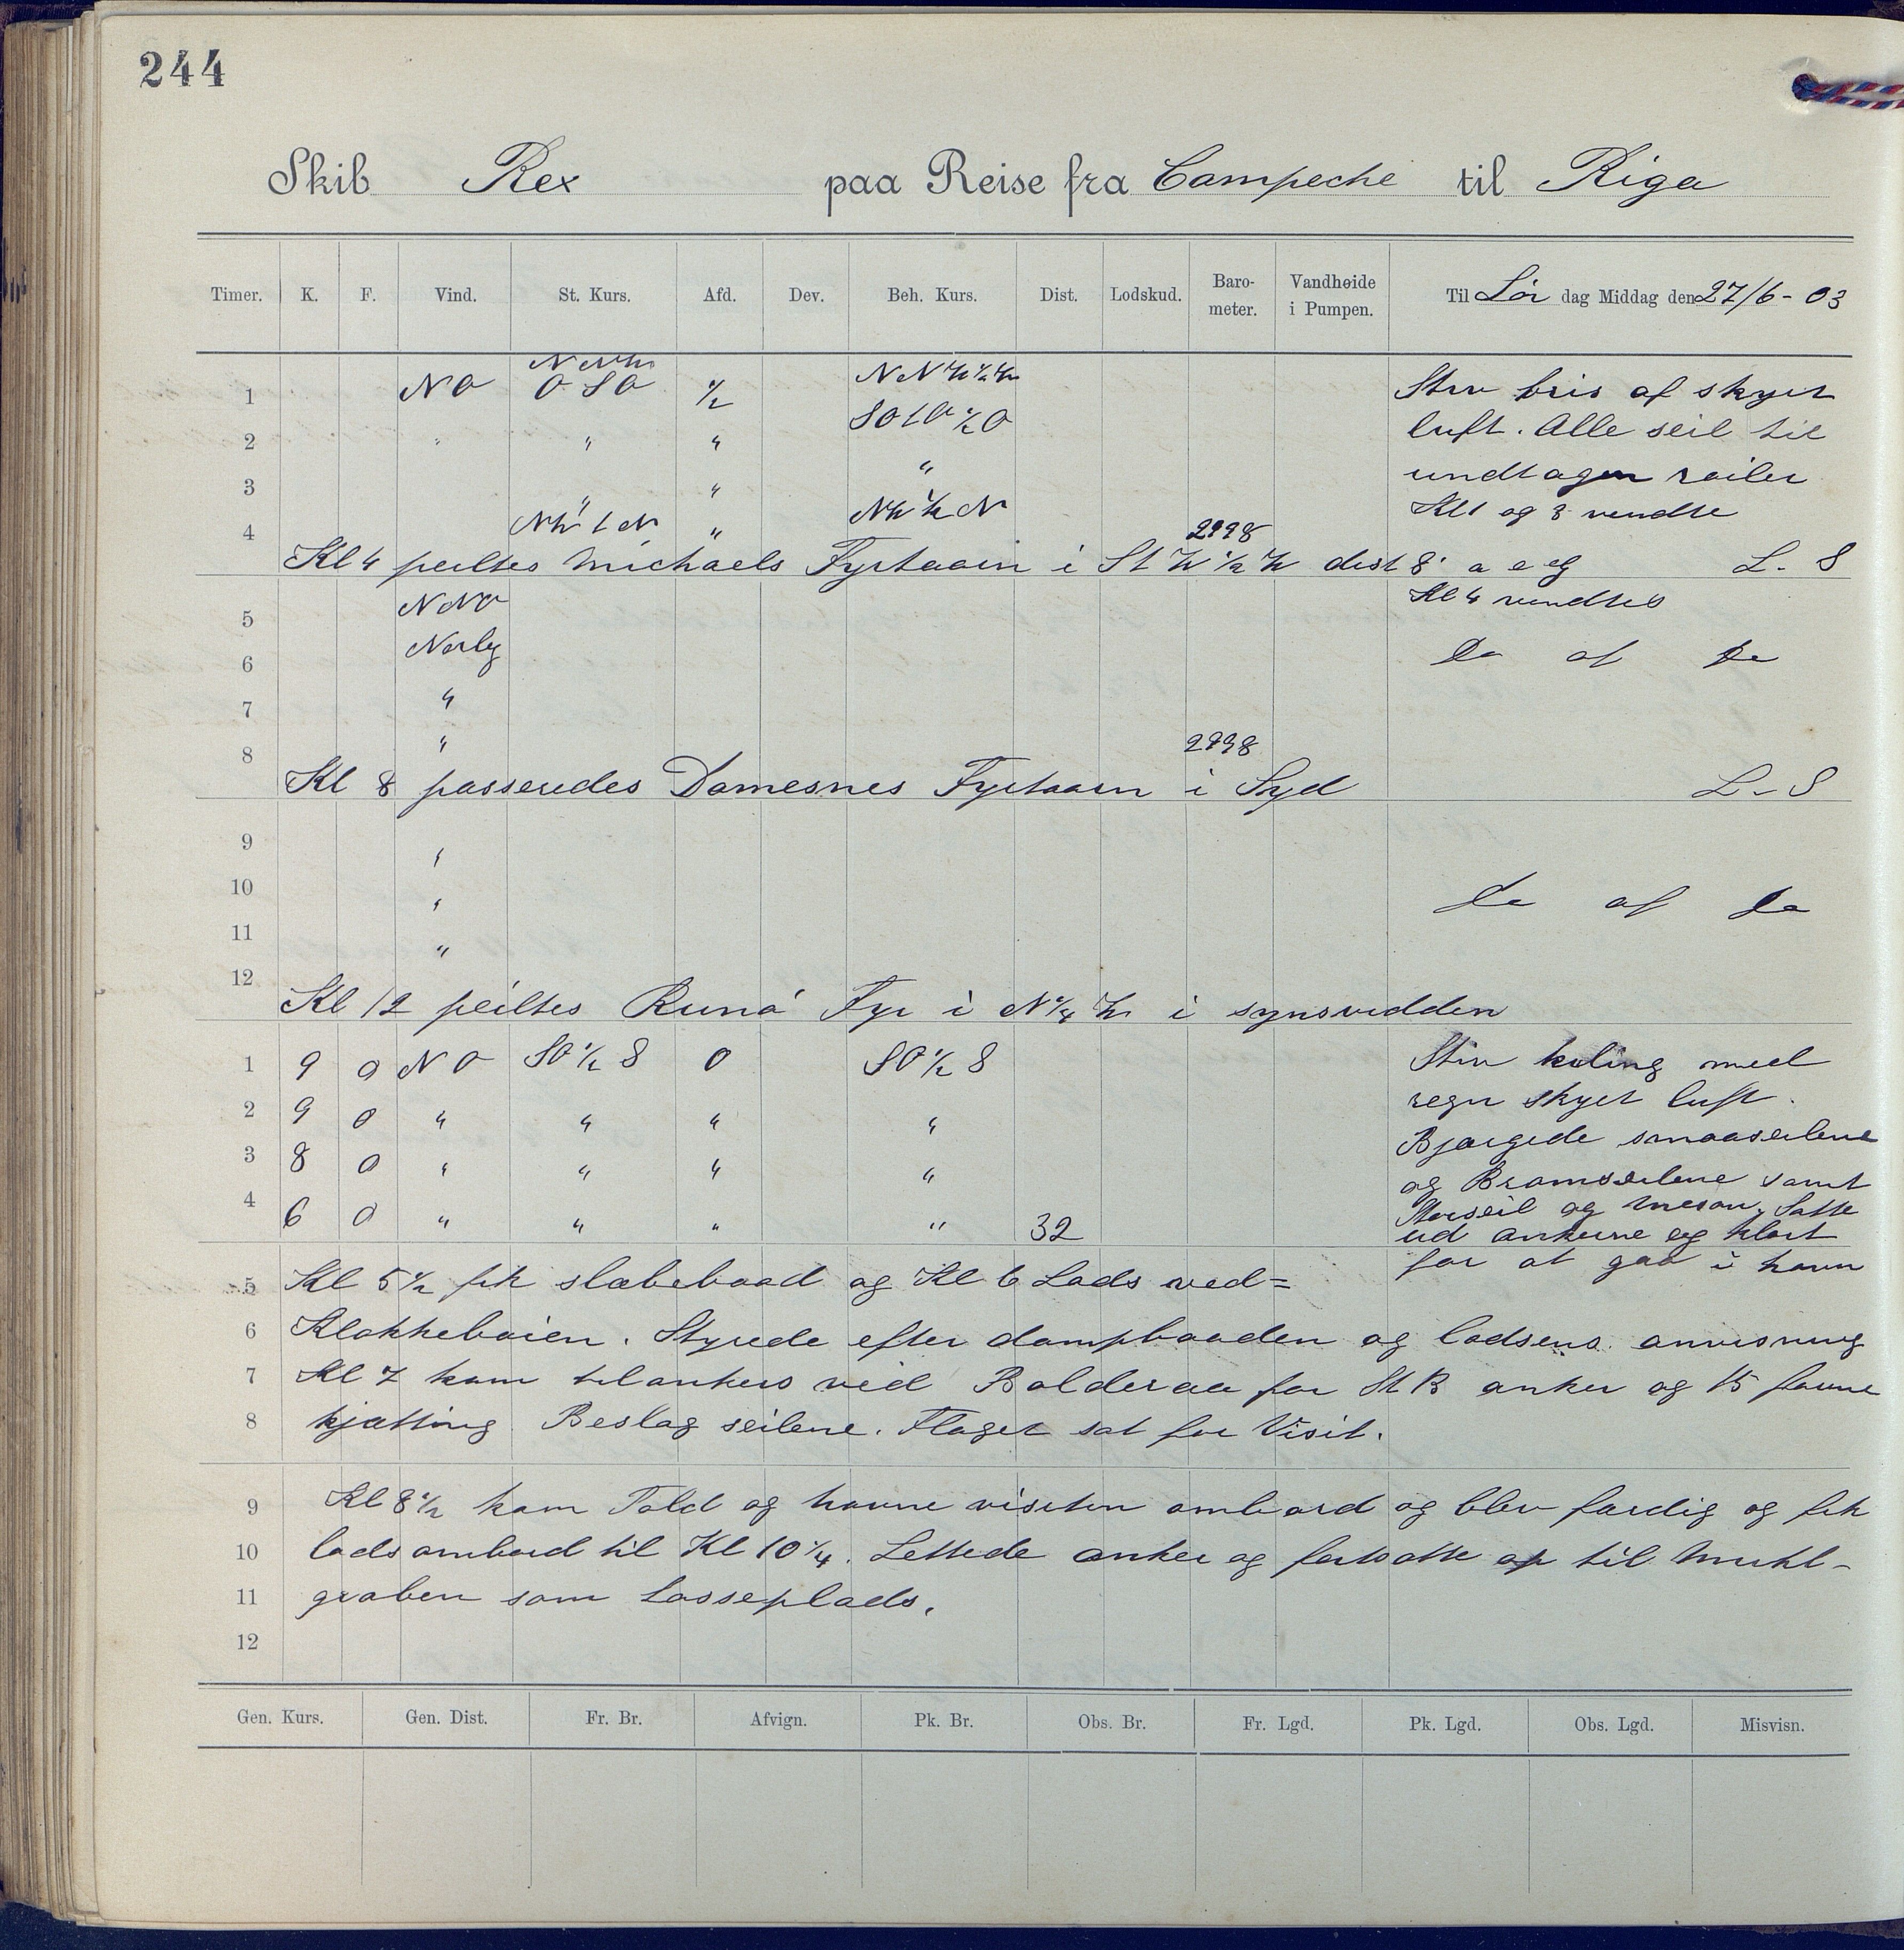 244
Skib Rex paa Reise fra Campeche til Riga
Timer. K. F. Vind. St. Kurs. Afd. Dev. Beh. Kurs. Dist. Lodskud. Baro-meter. Vandhøide i Pumpen. Til Lör dag Middag den 27/6 - 03
1 NO O S O ½ Stiv bris af skyet
2 " " " luft. Alle seil til
3 " " " undtagen
4 " " 2998 Kl 1 og 3 vendte
Kl 4 peiltes Michaels Fyrtaarn i dist 8' L - S
5 NNO Kl 4 vendtes
6 Norlg Do af Do
7 "
8 " 2998
Kl 8 passeredes Domesnes Fyrtaarn i Syd L - S
9 "
10 " Do af Do
11 "
12
Kl 12 peiltes Runö Fyr i N ¼ W i synsvidden
1 9 0 NO SO ½ S 0 SO ½ S Stiv kuling med
2 9 0 " " " " regn skyet luft.
3 8 0 " " " " Bjærgede smaaseilene
4 6 0 " " " " 32 og Bramseilene samt
Storseil og Mesan. Satte
ud ankerne og klart
for at gaa i havn
5 Kl 5 ½ fik slæbebaad og Kl 6 Lods ved=
6 Klokkebøien. Styrede efter dampbaaden og lodsens anvisning
7 Kl 7 kom tilankers ved Bolderaa for St B anker og 15 favne
8 kjætting Beslog seilene. Flaget sat for Visit.
9 Kl 8 ½ kom Told og havne visiten ombord og blev færdig og fik
10 lods ombord til Kl 10 ¼. Lettede anker og fortsatte op til Muhl-
11 graben som Losseplads.
12
Gen. Kurs. Gen. Dist. Fr. Br. Afvign. Pk. Br. Obs. Br. Fr. Lgd. Pk. Lgd. Obs. Lgd. Misvisn.